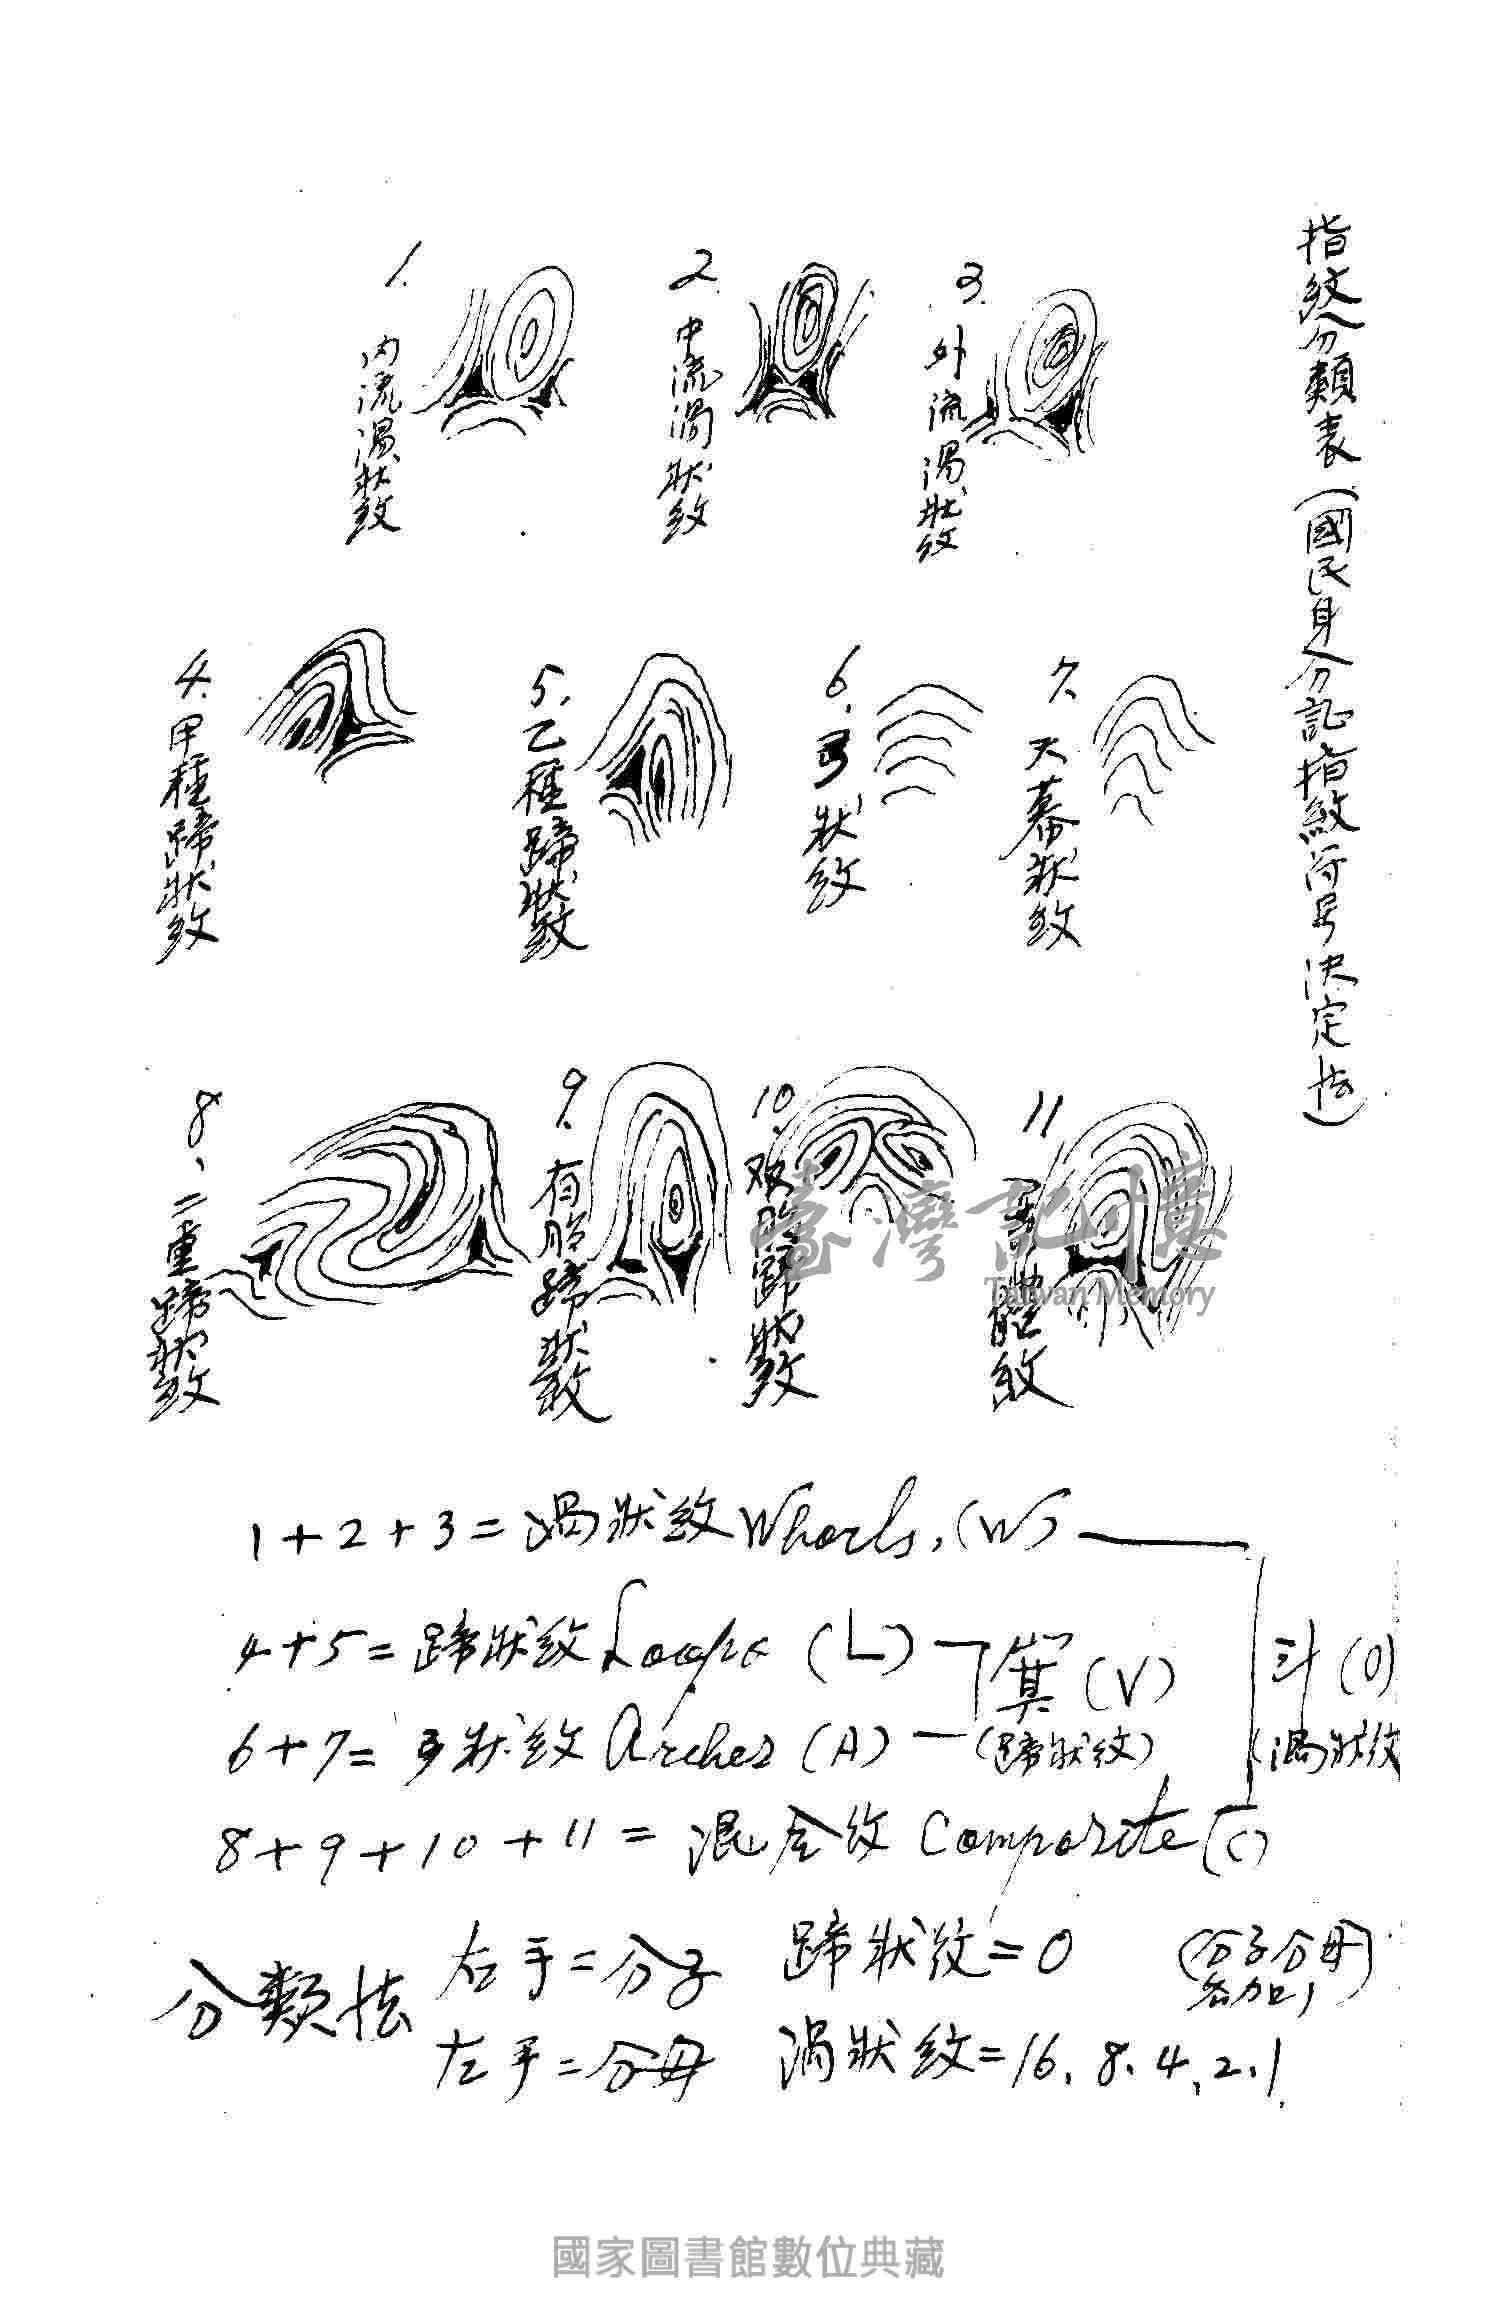 指紋分類表(國民身分証指紋符号決定法)
1. 内流渦狀紋
2. 中流渦狀紋
3. 外流渦狀紋
4. 甲種蹄狀紋
5. 乙種蹄狀紋
6. 弓狀紋
7. 天幕狀紋
8、二重蹄狀紋
9. 有胎蹄狀紋
10. 双胎蹄狀紋
11 變體紋
1+2+3=渦狀紋 Whorls, (W)
4+5=蹄狀紋 Loops (L)
箕(V)
(蹄狀紋)
斗(O)
(渦狀紋
6+7=弓狀紋 Arches (A)
8+9+10+11=混合紋 Composite (C)
分類法
右手=分子 蹄狀紋=0 (分子分母各加1)
左手=分母 渦狀紋=16、8、4、2、1
臺灣記憶
Taiwan Memory
國家圖書館數位典藏